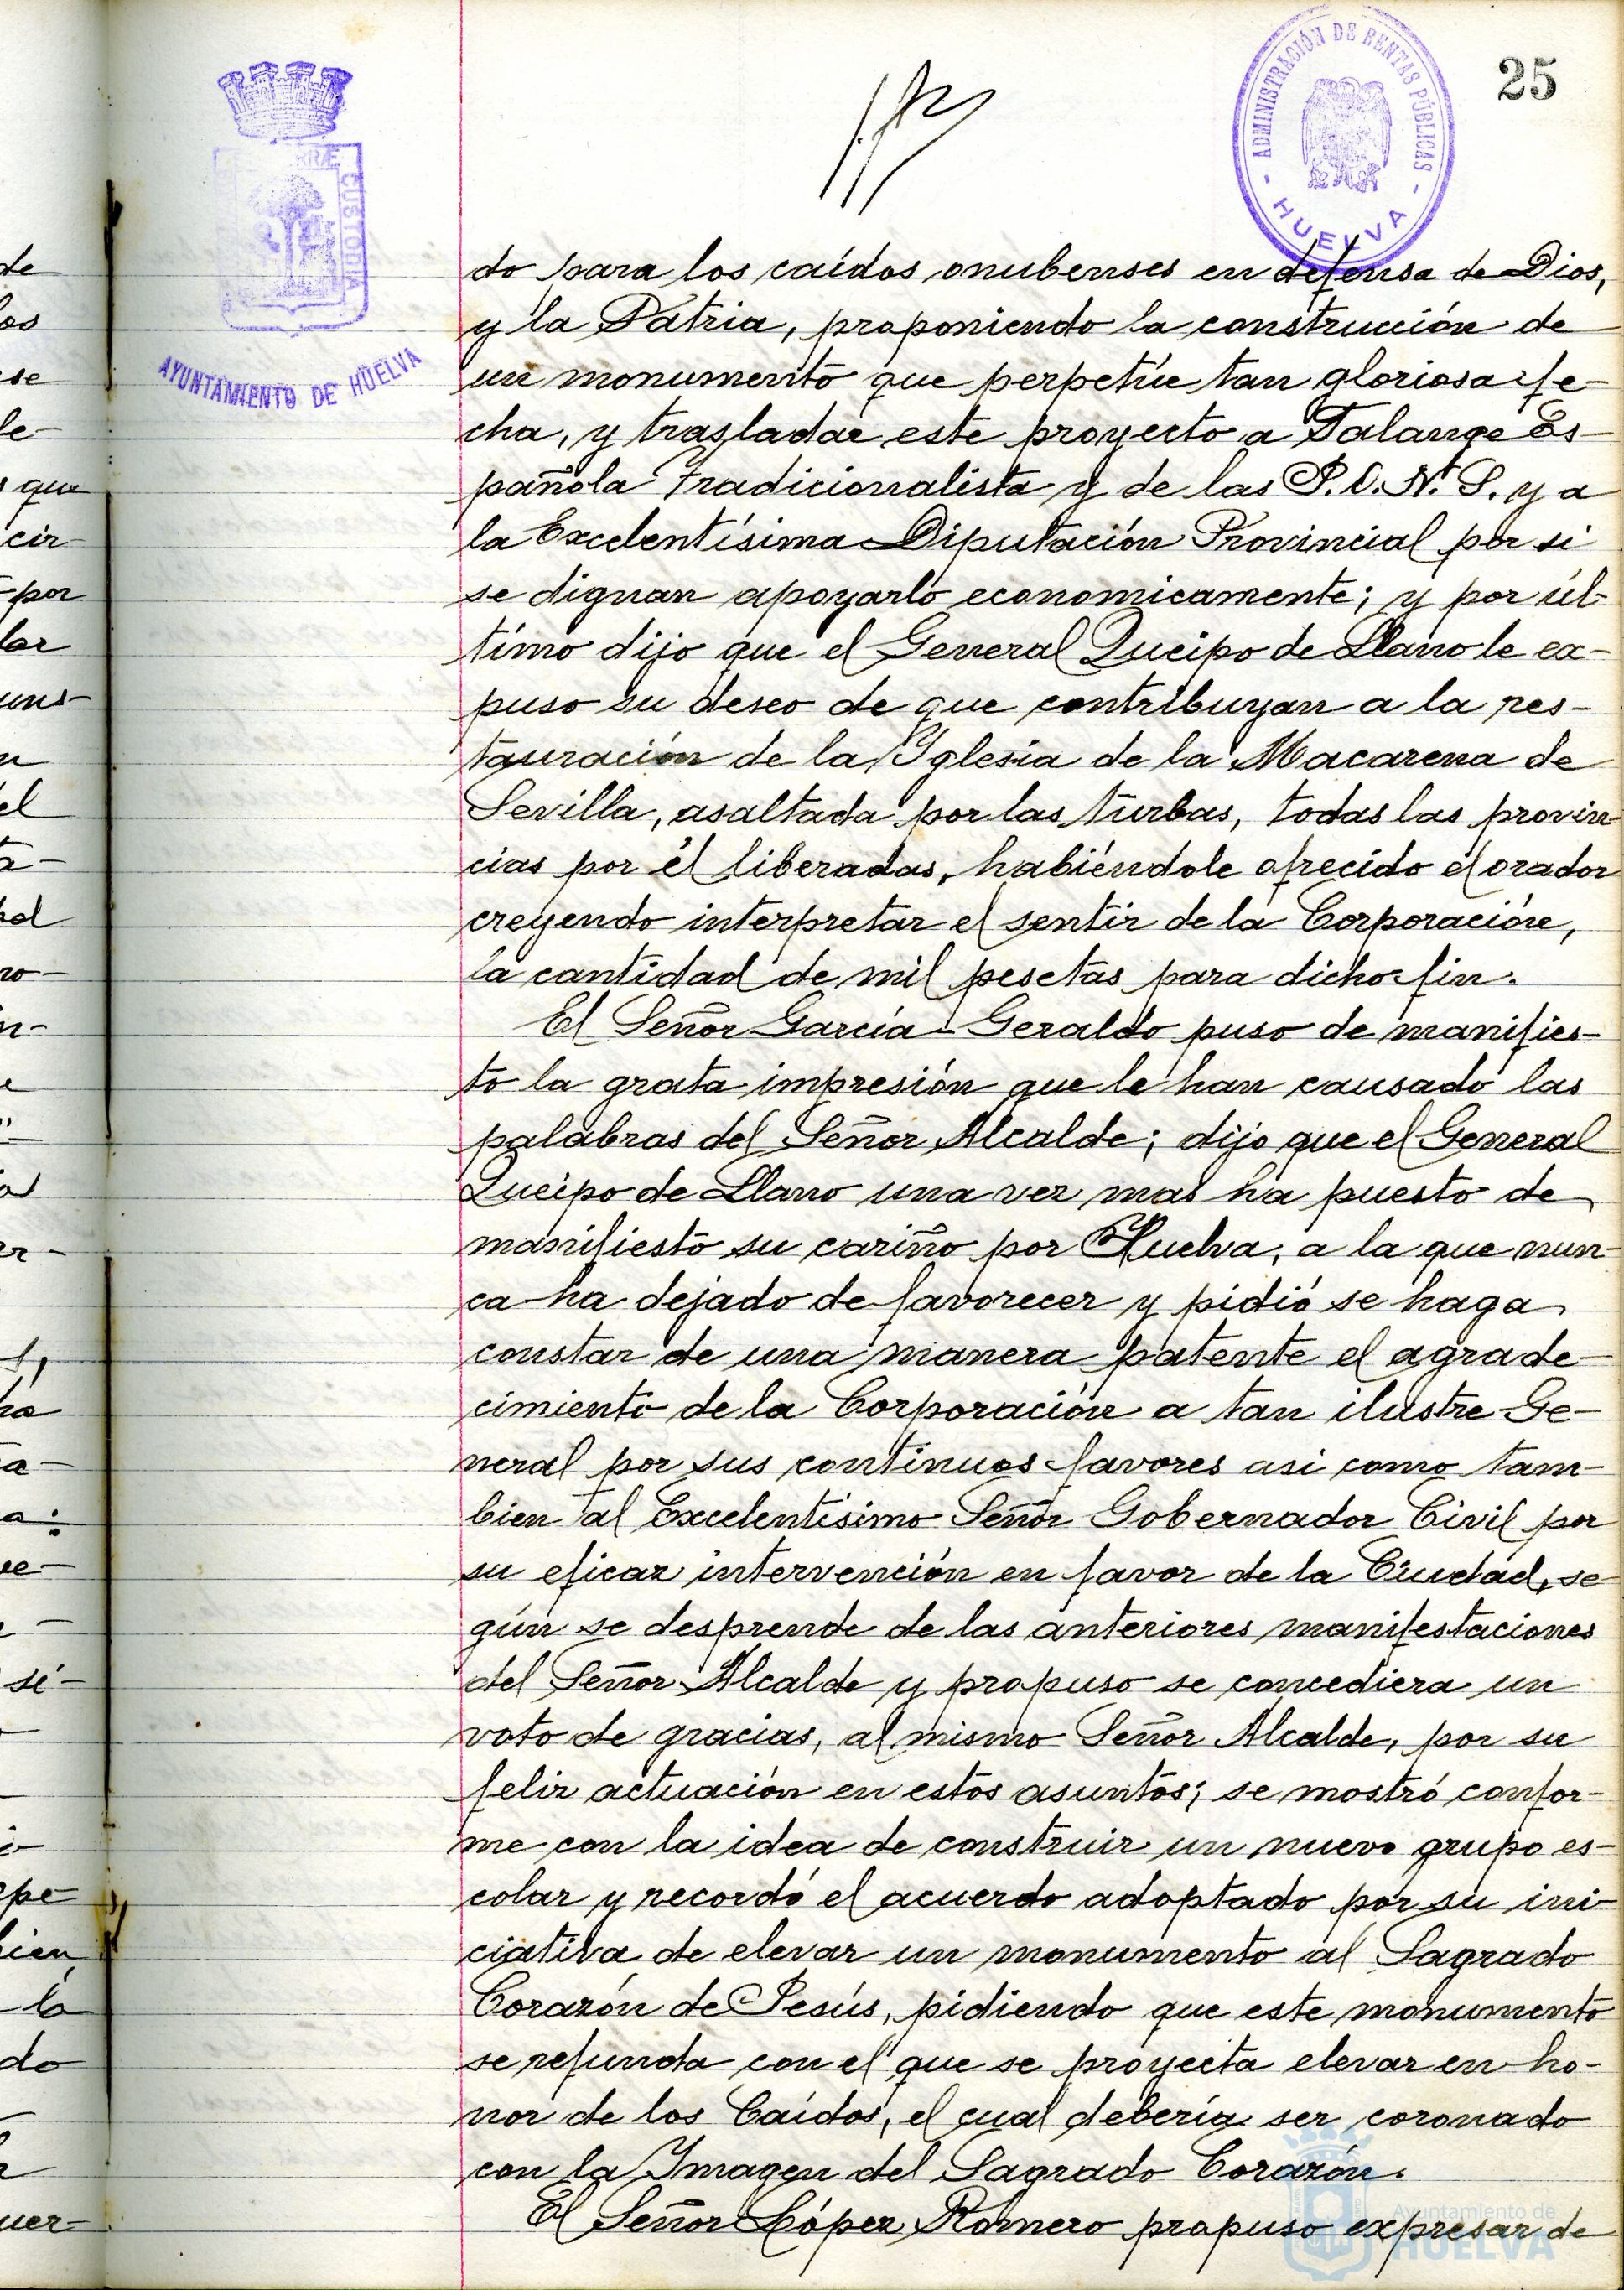 25
ADMINISTRACIÓN DE RENTAS PÚBLICAS
- HUELVA -
CUSTODIA
AYUNTAMIENTO DE HUELVA
do para los caídos onubenses en defensa de Dios,
y la Patria, proponiendo la construcción de
un monumento que perpetúe tan gloriosa fe-
cha, y trasladar este proyecto a Falange Es-
pañola Tradicionalista y de las J.O.N.S. y a
la Excelentísima Diputación Provincial por si
se dignan apoyarlo economicamente; y por úl-
timo dijo que el General Queipo de Llano le ex-
puso su deseo de que contribuyan a la res-
tauración de la Iglesia de la Macarena de
Sevilla, asaltada por las turbas, todas las provin-
cias por él liberadas, habiéndole ofrecido el orador
creyendo interpretar el sentir de la Corporación,
la cantidad de mil pesetas para dicho fin.
El Señor García-Geraldo puso de manifies-
to la grata impresión que le han causado las
palabras del Señor Alcalde; dijo que el General
Queipo de Llano una vez mas ha puesto de
manifiesto su cariño por Huelva, a la que nun-
ca ha dejado de favorecer y pidió se haga
constar de una manera patente el agrade-
cimiento de la Corporación a tan ilustre Ge-
neral por sus continuos favores asi como tam-
bien al Excelentísimo Señor Gobernador Civil por
su eficaz intervención en favor de la Ciudad, se
gún se desprende de las anteriores manifestaciones
del Señor Alcalde y propuso se concediera un
voto de gracias, al mismo Señor Alcalde, por su
feliz actuación en estos asuntos; se mostró confor-
me con la idea de construir un nuevo grupo es-
colar y recordó el acuerdo adoptado por su ini-
ciativa de elevar un monumento al Sagrado
Corazón de Jesús, pidiendo que este monumento
se refunda con el que se proyecta elevar en ho-
nor de los Caídos, el cual debería ser coronado
con la Imagen del Sagrado Corazón.
El Señor López Romero propuso expresar de
Ayuntamiento de
HUELVA